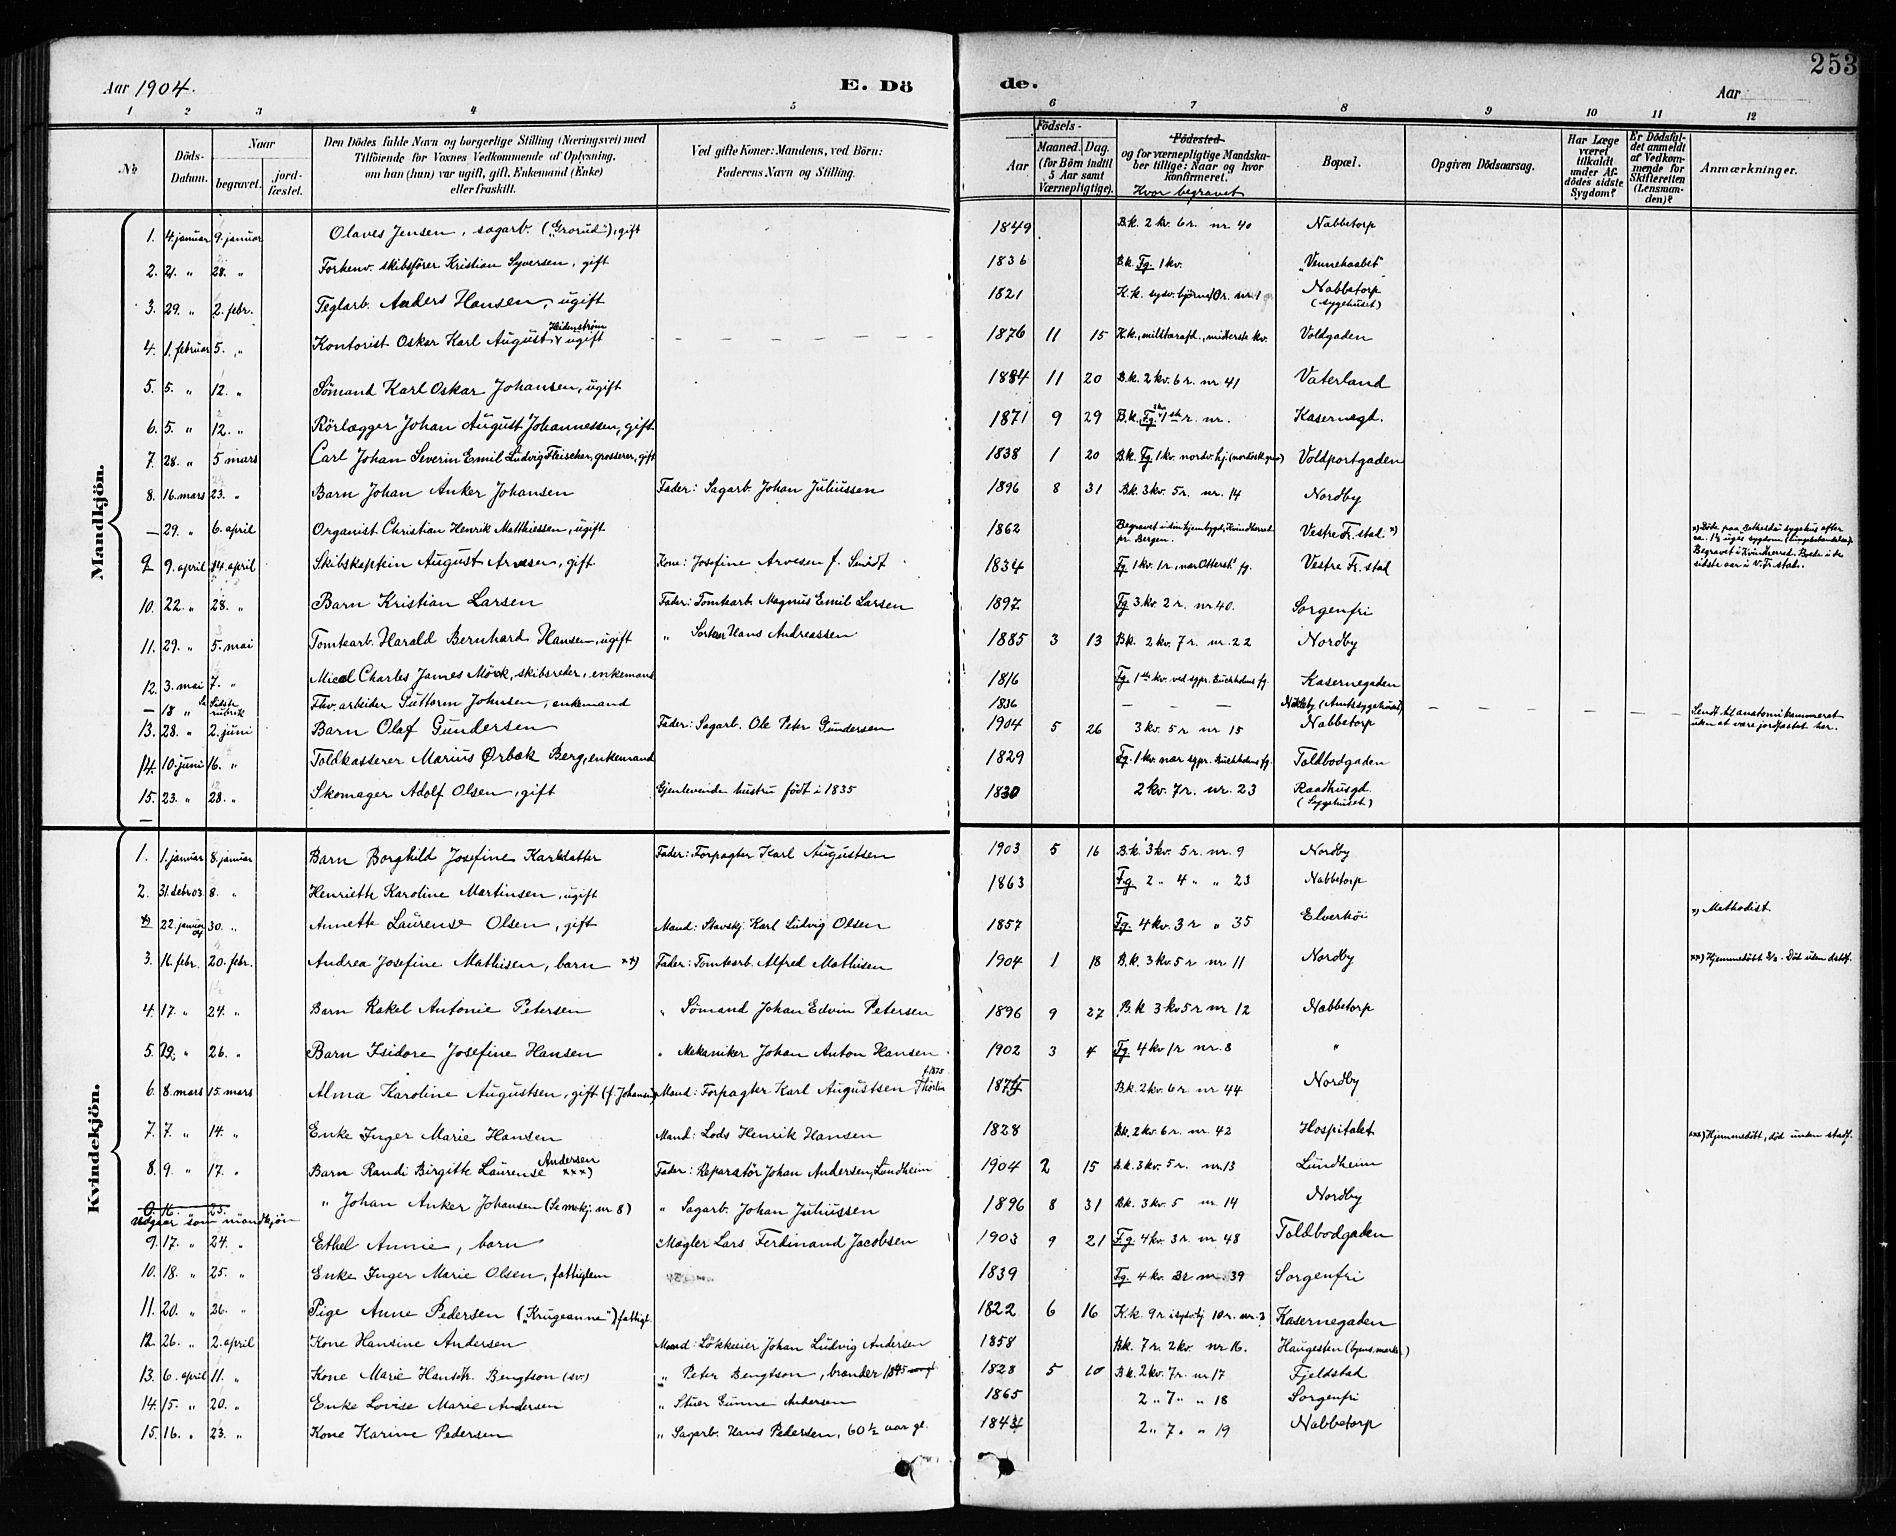 253
Aar 1904.
E. Dö
de.
Aar
1 2 3 4 5 6 7 8 9 10 11 12
No
Döds-Datum.
Naar
begravet.
jord-fæstet.
Den Dödes fulde Navn og borgerlige Stilling (Næringsvei) med
Tilföiende for Voxnes Vedkommende af Oplysning,
om han (hun) var ugift, gift, Enkemand (Enke)
eller fraskilt.
Ved gifte Koner: Mandens, ved Börn:
Faderens Navn og Stilling.
Födsels-
Aar
Maaned. Dag.
(for Börn indtil
5 Aar samt
Værnepligtige).
Födested
og for værnepligtige Mandska-
ber tillige: Naar og hvor
konfirmeret.
Hvor begravet
Bopæl.
Opgiven Dödsaarsag.
Har Læge
været
tilkaldt
under Af-
dödes sidste
Sygdom?
Er Dödsfal-
det anmeldt
af Vedkom-
mende for
Skifteretten
(Lensman-
den)?
Anmærkninger.
Mandkjön.
1. 4 januar 9. januar Olaves Jensen, sagarb. ("Grorud"), gift 1849 B.k. 2 kv. 6 r. nr. 40 Nabbetorp
2. 21. " 28. " Forhenv. skibsförer Kristian Syversen, gift 1836 B.k. Fg. 1 kv. "Vennehaabet"
3. 29. " 2. febr. Teglarb. Anders Hansen, ugift 1821 K.k. sydv. hjörne, Nabbetorp (sygehuset)
4. 1. februar 5. " Kontorist Oskar Karl August Heidenström, ugift 1876 11 15 K.k., militærafd., midterste kv. Voldgaden
5. 5. " 12. " Sömand Karl Oskar Johansen, ugift 1884 11 20 B.k. 2 kv. 6 r. nr 41 Vaterland
6. 5. " 12. " Rörlægger Johan August Johannessen, gift 1871 9 29 B.k. Fg. 1ste r. nr. Kasernegd.
7. 28. " 5 mars Carl Johan Severin Emil Ludvig Fleischer, grosserer, gift 1838 1 20 B.k. Fg. 1 kv. nordv. hj. Voldportgaden
8. 16. mars 23. " Barn Johan Anker Johansen Fader: Sagarb. Johan Juliussen 1896 8 31 B.k. 3 kv. 5 r. nr. 14 Nordby
— 29. " 6. april Organist Christian Henrik Matthiessen, ugift 1862 Begravet i sin hjembygd, Kvindherred pr. Bergen. Vestre Fr.stad x)
x) Döde paa Bethesda sygehus efter
ca. 1½ uges sygdom
Begravet i Kvindherred. Boede i de
sidste aar i V. Fr.stad.
9. 9. april 14. april Skibskaptein August Arvesen, gift Kone: Josefine Arvesen f. 1834 Fg. 1 kv. 1 r. Vestre Fr.stad
10. 22. " 28. " Barn Kristian Larsen Fader: Tomtearb. Magnus Emil Larsen 1897 Fg. 3 kv. 2 r. nr 40. Sorgenfri
11. 29. " 5. mai Tomtearb. Harald Bernhard Hansen, ugift " Hans Andreassen 1885 3 13 B.k. 2 kv. 7 r. nr. 22 Nordby
12. 3. mai 7. " Charles James Mörk, skibsreder, enkemand 1816 Fg. 1ste kv. ved sgpr. Buchholms fg. Kasernegaden
— 18 " Se sidste rubrik Fhv. arbeider Guttorm Johnsen, enkemand 1836 — — — (Amtssygehuset) Sendt til anatomikammeret
uten at være jordfæstet her.
13. 28. " 2. juni Barn Olaf Gundersen Fader: Sagarb. Ole Peter Gundersen 1904 5 26 3 kv. 5 r nr 15 Nabbetorp
14. 10. juni 16. " Toldkasserer Marius Ørbæk Berg, enkemand 1829 Fg. 1 kv. nær sgpr. Buchholms fg. Toldbodgaden
15. 23. " 28. " Skomager Adolf Olsen, gift Gjenlevende hustru födt i 1835 1830 2 kv. 7 r. nr. 23 Raadhusgd. (Sygehuset)
Kvindekjön.
1. 1. januar 8. januar Barn Borghild Josefine Karlsdatter Fader: Forpagter Karl Augustsen 1903 5 16 B.k. 3 kv. 5 r. nr. 9 Nordby
2. 31 debr 03 8. " Henriette Karoline Martinsen, ugift 1863 Fg. 2 " 4 " " 23 Nabbetorp
x) 22. januar 30. " Annette Laurense Olsen, gift Mand: Karl Ludvig Olsen 1857 Fg. 4 kv. 3 r " 35 Elverhöi x) Methodist
3. 16. febr. 20. febr. Andrea Josefine Mathisen, barn xx) Fader: Tomtearb. Alfred Mathisen 1904 1 18 B.k. 3 kv. 5 r nr 11 Nordby xx) Hjemmedöbt Död uden stadf.
4. 17. " 24. " Barn Rakel Antonie Petersen " Sömand Johan Edvin Petersen 1896 9 27 B.k. 3 kv 5 r nr 12 Nabbetorp
5. 19. " 26. " Barn Isidore Josefine Hansen " Mekaniker Johan Anton Hansen 1902 3 4 Fg. 4 kv 1 r nr. 8 "
6. 8. mars 15. mars Alma Karoline Augustsen, gift (f. Johansen) Mand: Forpagter Karl Augustsen f. 1875 1874 B.k. 2 kv. 6 r nr 44 Nordby
7. 7. " 14. " Enke Inger Marie Hansen Mand: Lods Henrik Hansen 1828 B.k. 2 kv. 6 r. nr. 42 Hospitalet
8. 9. " 17. " Barn Randi Birgitte Laurense Andersen xxx) Fader: Reparatör Johan Andersen, Lundheim 1904 2 15 B.k. 3 kv. 5 r. nr. 13 Lundheim xxx) Hjemmedöbt, död uden stadf.
9. 16. 23. " Johan Anker Johansen (Se mkj. nr 8) " Sagarb. Johan Juliussen 1896 8 31 B.k. 3 kv. 5 nr 14 Nordby
Udgaar som mandkjön
9. 17. " 24. " Ethel Annie, barn " Mægler Lars Ferdinand Jacobsen 1903 9 21 Fg. 4 kv. 3 r. nr 48 Toldbodgaden
10. 18. " 25. " Enke Inger Marie Olsen, fattiglem 1839 Fg. 4 kv. 3 r. nr. 39 Sorgenfri
11. 20. " 26. " Pige Anne Pedersen ("Krugeanne") fattigl. 1822 6 16 K.k. 9 r. 10 r. nr. 3 Kasernegaden
12. 26. " 2. april Kone Hansine Andersen Mand: Lökkeeier Johan Ludvig Andersen 1858 B.k. 7 r. 2 kv. nr 16. Haugesten (byens mark)
13. 6. april 11. " Kone Marie Hansdr. Bengtson (sv.) " Peter Bengtson, brænder 1845 1828 5 10 B.k. 2 kv. 7 r. nr 17 Fjeldstad
14. 15. " 20. " Enke Lovise Marie Andersen " Stuer Gunne Andersen 1865 2 " 7 " " 18 Sorgenfri
15. 16. " 23. " Kone Karine Pedersen " Sagarb. Hans Pedersen, 60½ aar gl. 1843 2 " 7 " " 19 Nabbetorp